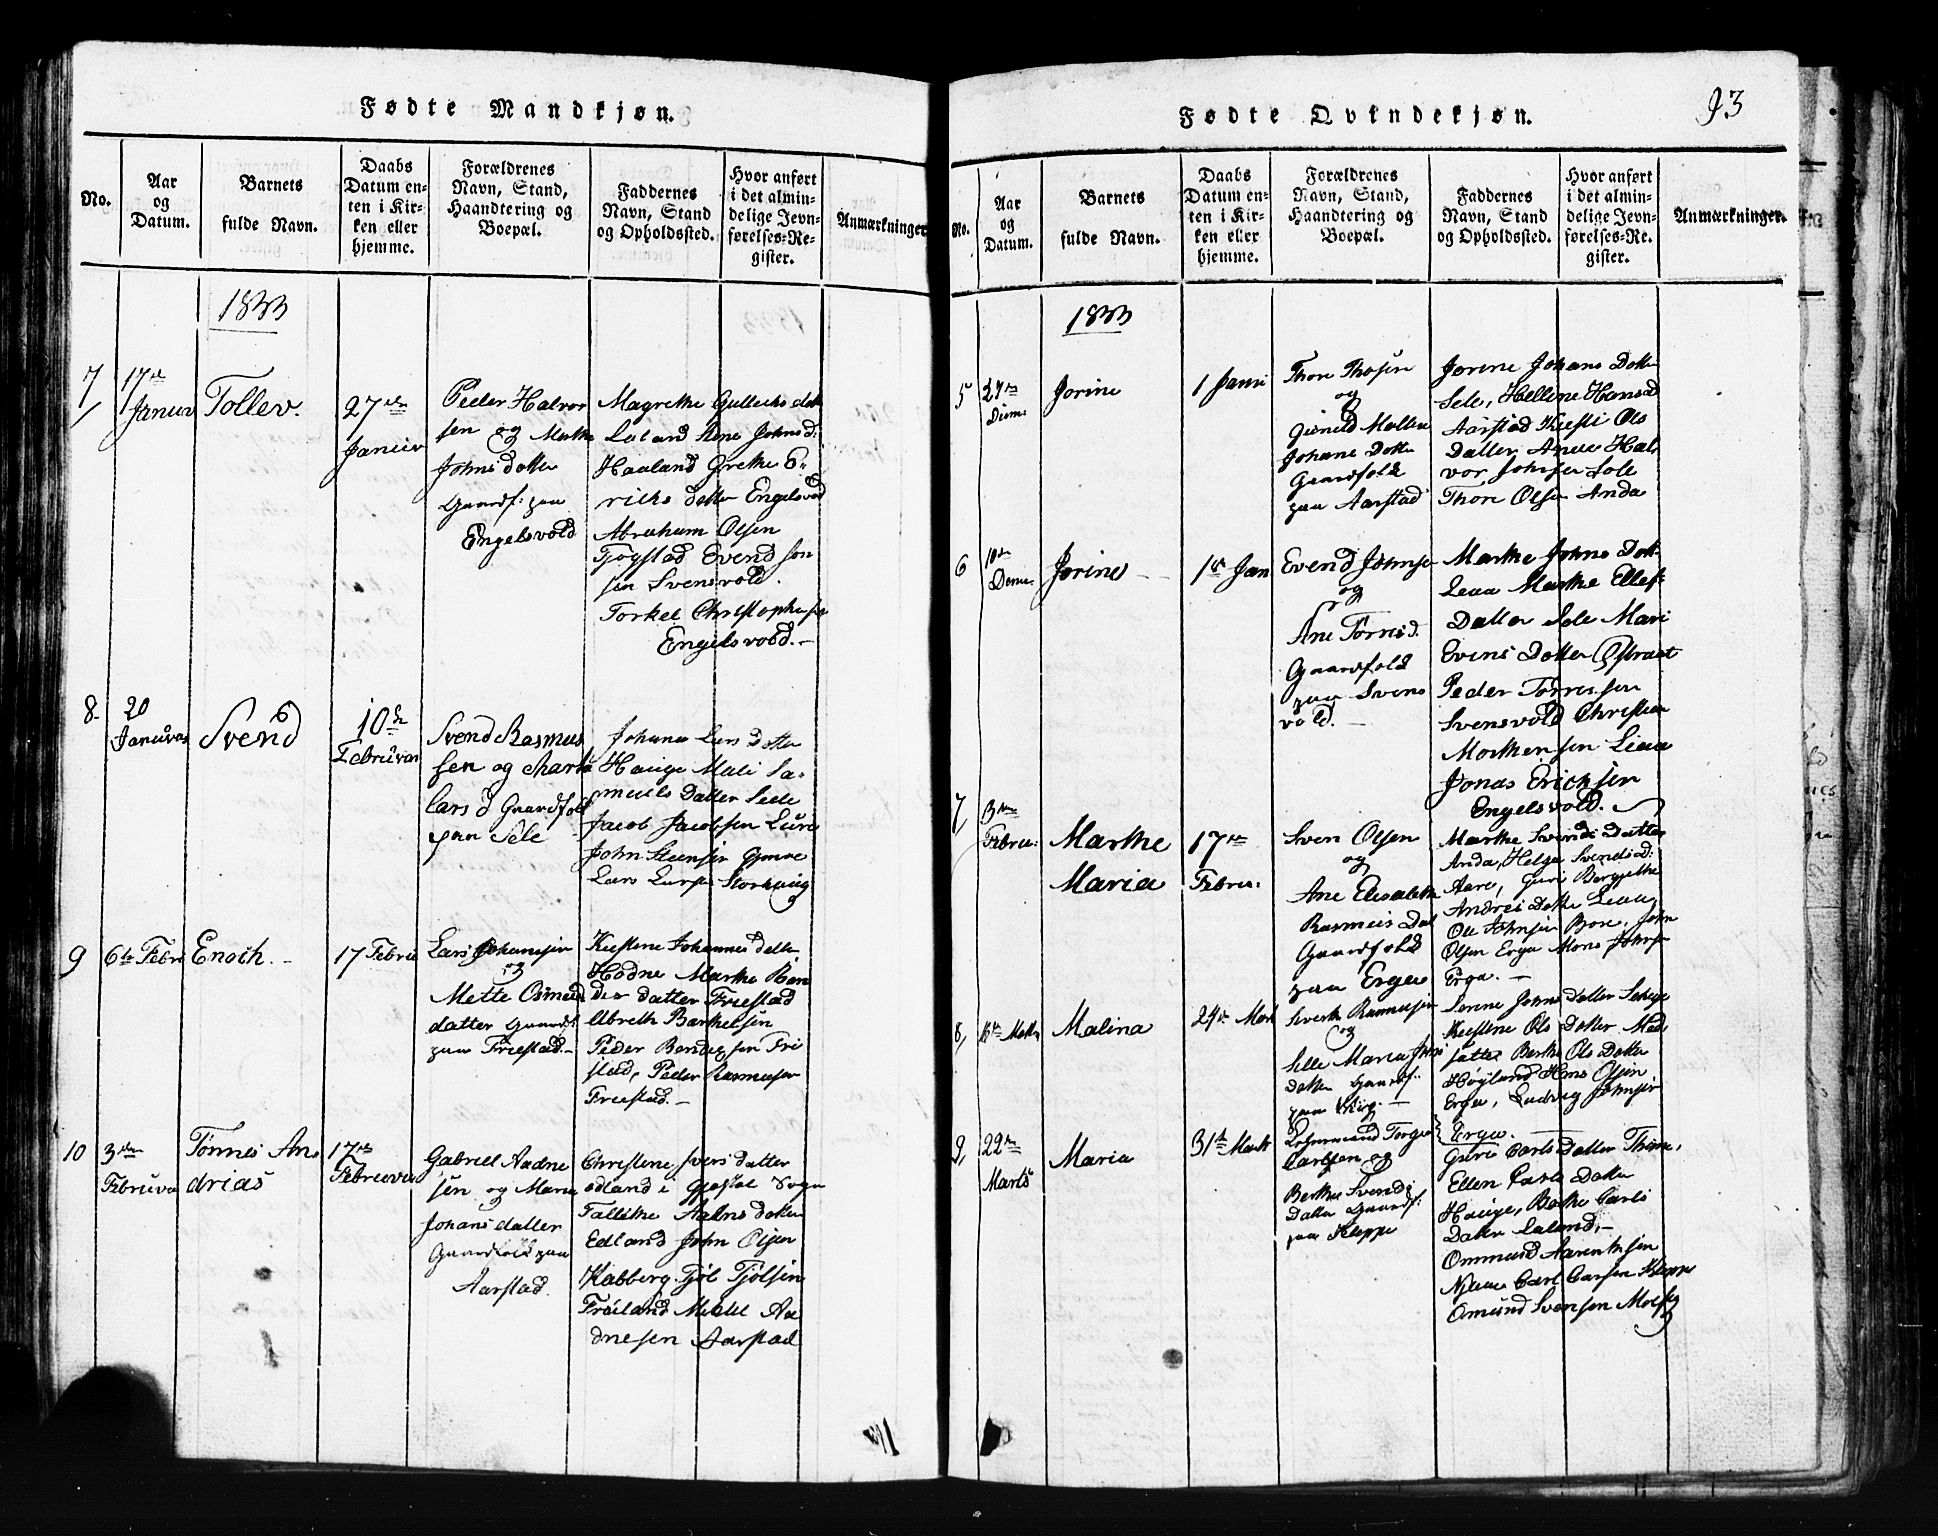 Fødte Mandkjøn.
No.
Aar
og
Datum.
Barnets
fulde Navn.
Daabs
Datum en-
ten i Kir-
ken eller
hjemme.
Forældrenes
Navn, Stand,
Haandtering og
Boepæl.
Faddernes
Navn, Stand
og Opholdssted.
Hvor anført
i det almin-
delige Jevn-
førelses-Re-
gister.
Anmærkninger
1833
7
17de
Januv
Tollev.
27de
Januv
Peder Halvor
sen og Marthe
Johns dotter
Gaardf: paa
Engelsvold
Magrethe Gullechs dott
Laland Ane Johns d:
Haaland Grethe E"
richs dotter Engelsvold
Abraham Olsen
Tjøgstad Evend Jon
sen Svensvold.
Torkel Christophersen
Engelsvold.-
8.
20
Januvar
Svend
10de
Februvar
Svend Rasmus
sen og Martha
Lars d Gaardfolk
paa Sele
Johanne Lars Dotter
Hauge Mali Sa-
muels Datter Sele
Jacob Jacobsen
John Steensen
Lars Larsen Storhaug
9
6te Febru
Enoch. -
17 Febru
Lars Johannesen
og
Mette Osmund
datter Gaardf:
paa Friestad.-
Kirstene Johannes dotter
Hodne Marthe Ben
der datter Friestad
Ubreth Barthelsen
Peder Bendixsen Fri
stad, Peder Rasmusen
Friestad.-
10
3die
Februva
Tønnes An
drias
17de
Februvar
Gabriel Aadne
sen og Maria
Johans datter
Gaardfolk paa
Aarstad.
Christene Ivers datter
odland i Gjestal Sogn
Tallethe Aadns dotter
Edland John Olsen
Kabberg Tjøl Tjølsen
Frøiland Mikkel Aa
dnesen Aarstad
Fødte Qvindekjøn.
93
No.
Aar
og
Datum.
Barnets
fulde Navn.
Daabs
Datum en-
ten i Kir-
ken eller
hjemme.
Forældrenes
Navn, Stand,
Haandtering og
Boepæl.
Faddernes
Navn, Stand
og Opholdssted.
Hvor anført
i det almin-
delige Jevn-
førelses-Re-
gister.
Anmærkninger.
1833
5
27de
Jorine
1 Janu
Thore
og
Johane Dotter
Gaardfolk
paa Aarstad
Jorine Johans Dotter
Sele, Hellene Hansd
Aarstad Kirsti Ols
Datter Anda Hal
vor Johnsen Sole
Thore Olsen Anda
6
10de
Jorine -
1ste Jan
Evend Johnsen
og
Ane Tørresd.
Gaardfolk
paa Svens
vold. -
Marthe Johns Dott
Leaa Marthe Ellef-
Datter Sele Mari
Evens Dotter Østraat
Peder Torresen
Svensvold Christian
Morthensen Liaa
Jonas Erichsen
Engelsvold.
7
3die
Febru:
Marthe
Maria
17de
Febru:
Sven Olsen
og
Ane Elisabeth
Rasmus Dat
Gaardfolk
paa Erga
Marthe Svends Datter
Anda, Helga Svends d:
Aare, Guri Bergjethe
Andreis Dotter Leaa,
Ole Johnsen Bore, John
Olsen Erga Mons Johnsen
Erga. -
8,
Malina
24de Mart
Siverth Rasmusen
og
Sille Maria Johns
Dotter Gaardf:
Serine Johns Datter
Kirstene Ols Dotter Mad
satter Berthe Ols Dotter
Høyland Hans Olsen
Erga, Ludvig Johnsen
Erga. -
9,
22de
Marts
Maria
31te Mart
Torger
Carlsen og
Berthe Svends
Datter Gaardf:
paa Kleppe
Guri Carls Datter Thime,
Ellen Carls Dotter
Hauge, Berthe Carls
Datter Laland,-
Ommund Aarentsen
Njaa Carl Carsen Kleppe
Omund Svensen